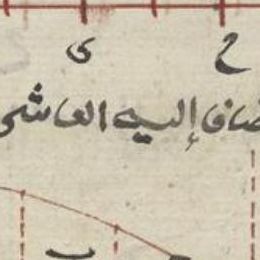 ح ى
ضاف إليه العاشر
ب